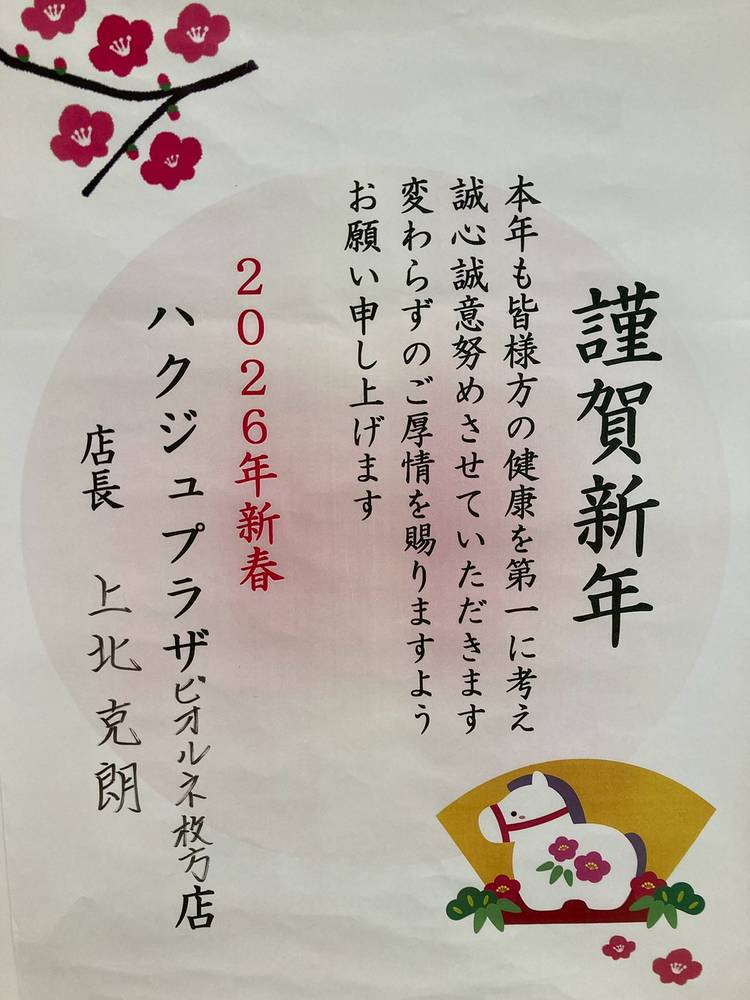 謹賀新年
本年も皆様方の健康を第一に考え
誠心誠意努めさせていただきます
変わらずのご厚情を賜りますよう
お願い申し上げます
2026年新春
ハクジュプラザビオルネ枚方店
店長 上北克朗